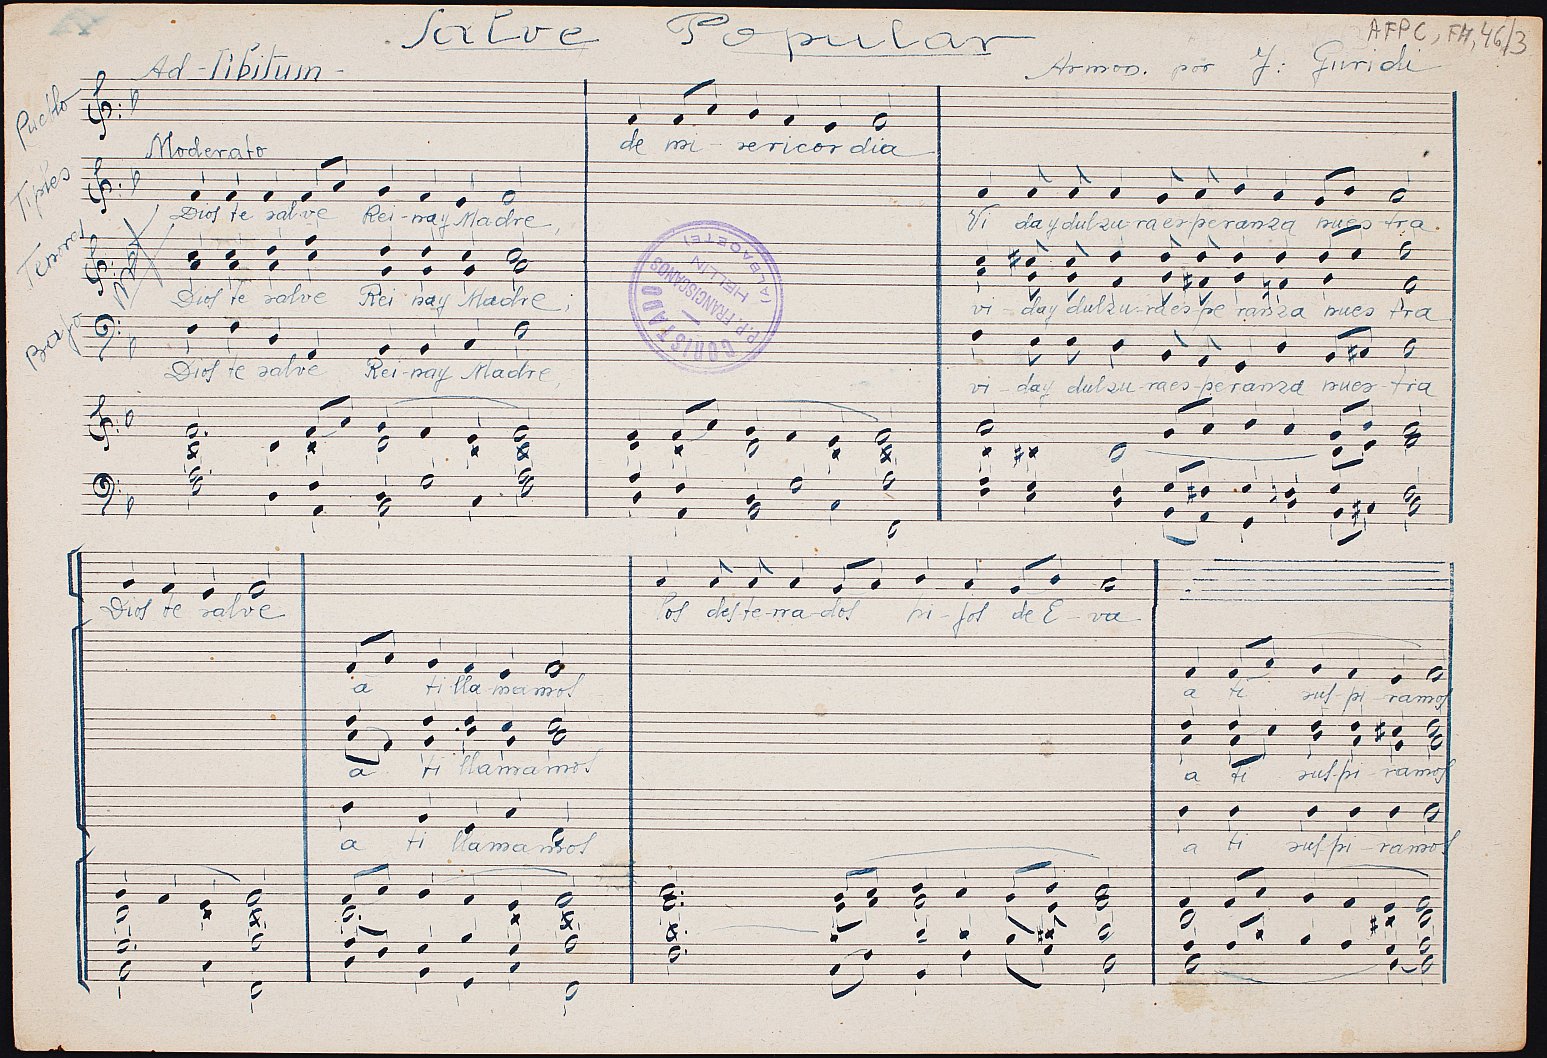 AFPC, FH, 46/3
Salve Popular
Ad-libitum-
Armon. por J: Guridi
Pueblo
de mi-sericordia
Moderato
Tiples
Dios te salve Rei-nay Madre,
Vi day dulzu-raesperanza nues-tra.
Tenores
Dios te salve Rei nay Madre,
vi-day dulzu-raespe ranza nues tra
Bajo
Dios te salve Rei-nay Madre,
vi-day dulzu-raes-peranza nues-tra
CORISTADO
P.P. FRANCISCANOS
HELLIN
(ALBACETE)
Dios te salve
los deste-rra-dos hi-jos de E-va
a ti lla mamos
a ti sus-pi-ramos
a ti llamamos
a ti sus-pi-ramos
a ti llamamos
a ti sus-pi-ramos